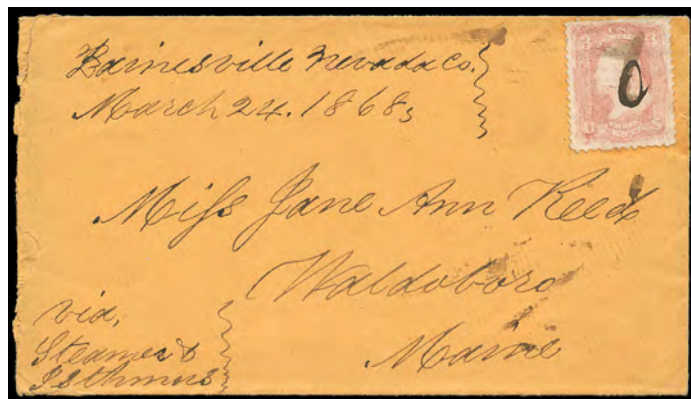 Barnesville Nevada Co.
March 24. 1868
Miss Jane Ann Reed
Waldoboro
Maine
via,
Steamer &
Isthmus